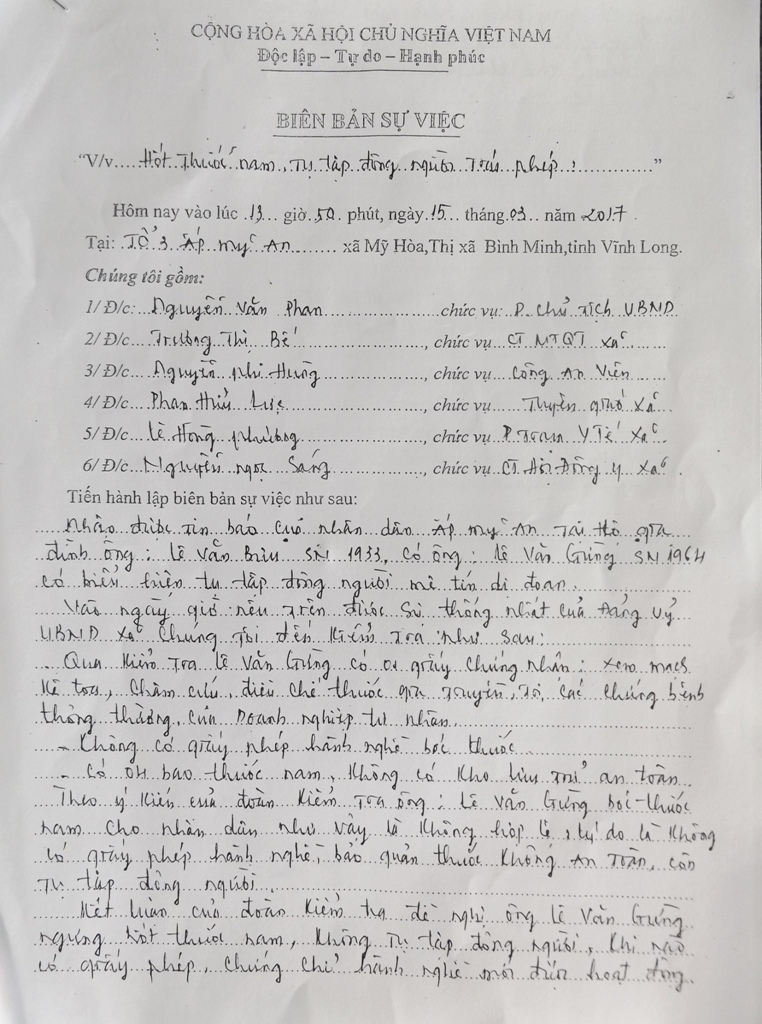 CỘNG HÒA XÃ HỘI CHỦ NGHĨA VIỆT NAM
Độc lập – Tự do – Hạnh phúc
BIÊN BẢN SỰ VIỆC
"V/v.... Hốt thuốc nam, Tụ tập đông người trái phép : ............"
Hôm nay vào lúc .13.. giờ .50. phút, ngày .15... tháng .03... năm 2017.
Tại: .Tổ 3 Ấp mỹ An ........ xã Mỹ Hòa,Thị xã Bình Minh,tỉnh Vĩnh Long.
Chúng tôi gồm:
1/ Đ/c: Nguyễn Văn Phan ................... chức vụ: P. Chủ Tịch UBND.
2/ Đ/c.. Trương Thị Bé ..................., chức vụ CT MTQT xã
3/ Đ/c.. Nguyễn phi Hùng ..................., chức vụ Công An Viên
4/ Đ/c.. Phan Hữu Lực ..................., chức vụ Xã
5/ Đ/c.. Lê Hồng phương ..................., chức vụ P. Trạm Y Tế Xã
6/ Đ/c.. Nguyễn ngọc Sáng ..................., chức vụ CT Hội Đông y Xã
Tiến hành lập biên bản sự việc như sau:
Nhận được tin báo của nhân dân Ấp mỹ An Tại Hộ gia
đình ông : Lê Văn Bửu SN 1933, có ông : Lê Văn Gừng SN 1964
có biểu hiện tụ tập đông người mê tín dị đoan.
Vào ngày giờ nêu trên được Sự thống nhất của Đảng Uỷ
UBND Xã Chúng Tôi đến kiểm Tra như sau:
- Qua kiểm Tra Lê Văn Gừng có 01 giấy chứng nhận : xem mạch
kê toa, Châm cứu, điều chế thuốc gia truyền, Trị các chứng bệnh
thông thường, của Doanh nghiệp tư nhân
- Không có giấy phép hành nghề bốc thuốc
- Có 04 bao thuốc nam, không có kho lưu trữ an toàn.
Theo ý kiến của đoàn kiểm Tra ông : Lê Văn Gừng bốc thuốc
nam cho nhân dân như vậy là không hợp lệ, lý do là không
có giấy phép hành nghề, bảo quản thuốc không An Toàn, còn
Tụ tập đông người.
Kết luận của đoàn kiểm tra đề nghị ông Lê Văn Gừng
ngưng hốt thuốc nam, không Tụ tập đông người, khi nào
có giấy phép, chứng chỉ hành nghề mới được hoạt động.